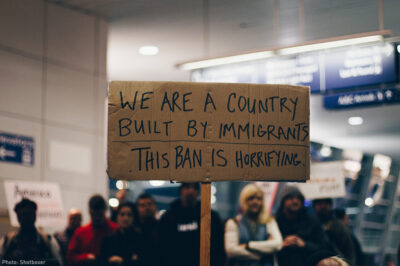 WE ARE A COUNTRY
BUILT BY IMMIGRANTS
THIS BAN IS HORRIFYING.
America
Photo- Shelbasser